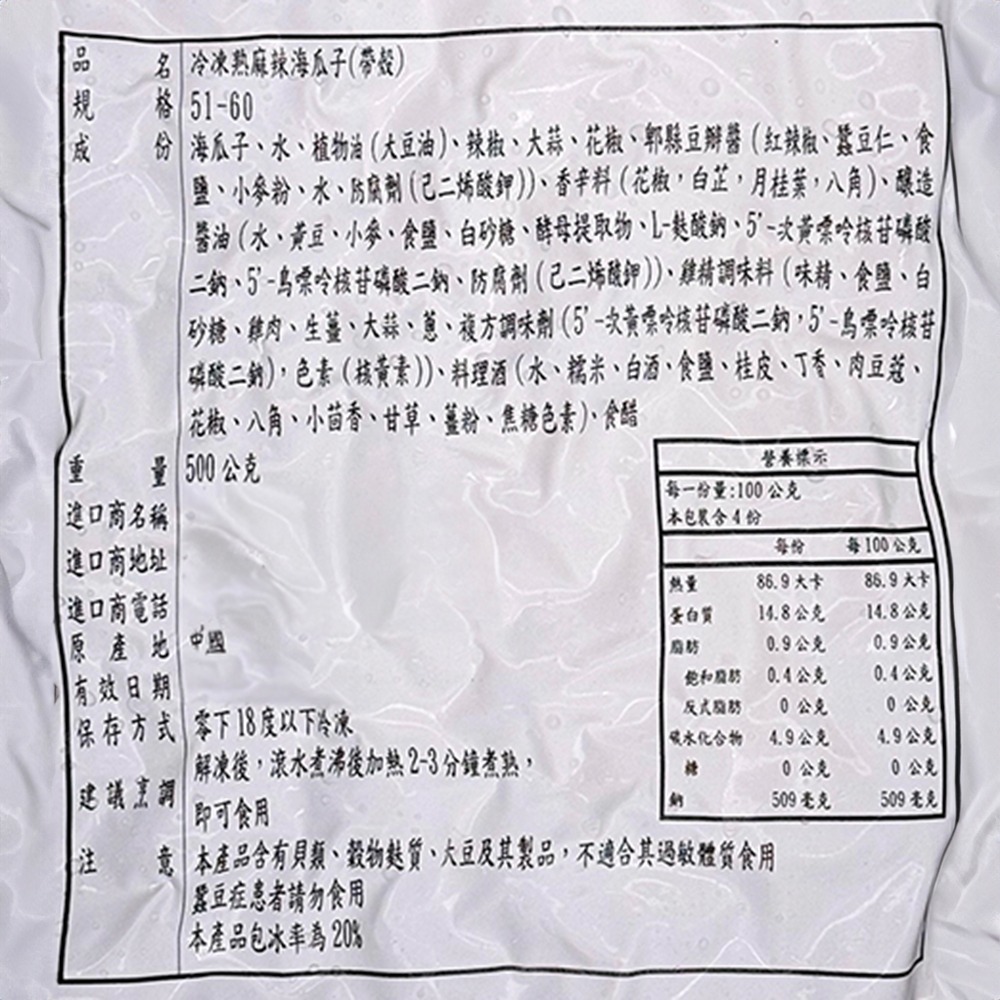 品名 冷凍熟麻辣海瓜子(帶殼)
規格 51-60
成份 海瓜子、水、植物油(大豆油)、辣椒、大蒜、花椒、郫縣豆瓣醬(紅辣椒、蠶豆仁、食
鹽、小麥粉、水、防腐劑(己二烯酸鉀))、香辛料(花椒,白芷,月桂葉,八角)、釀造
醬油(水、黃豆、小麥、食鹽、白砂糖、酵母提取物、L-麩酸鈉、5'-次黃嘌呤核苷磷酸
二鈉、5'-鳥嘌呤核苷磷酸二鈉、防腐劑(己二烯酸鉀))、雞精調味料(味精、食鹽、白
砂糖、雞肉、生薑、大蒜、蔥、複方調味劑(5'-次黃嘌呤核苷磷酸二鈉,5'-鳥嘌呤核苷
磷酸二鈉),色素(核黃素))、料理酒(水、糯米、白酒、食鹽、桂皮、丁香、肉豆蔻、
花椒、八角、小茴香、甘草、薑粉、焦糖色素)、食醋
重量 500公克
進口商名稱
進口商地址
進口商電話
原產地 中國
有效日期
保存方式 零下18度以下冷凍
建議烹調 解凍後,滾水煮沸後加熱2-3分鐘煮熟,
即可食用
注意 本產品含有貝類、穀物麩質、大豆及其製品,不適合其過敏體質食用
蠶豆症患者請勿食用
本產品包冰率為20%
營養標示
每一份量:100公克
本包裝含4份
每份 每100公克
熱量 86.9大卡 86.9大卡
蛋白質 14.8公克 14.8公克
脂肪 0.9公克 0.9公克
飽和脂肪 0.4公克 0.4公克
反式脂肪 0公克 0公克
碳水化合物 4.9公克 4.9公克
糖 0公克 0公克
鈉 509毫克 509毫克